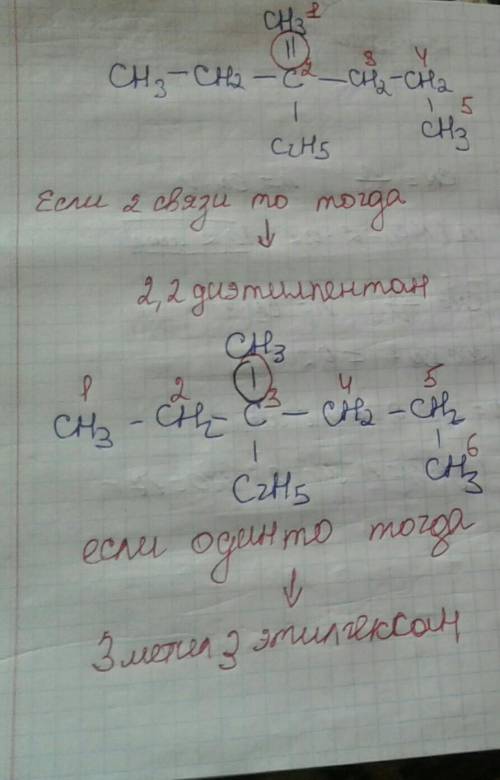 CH3 1
||
CH3 — CH2 — C 2 — CH2 3 — CH2 4
| |
C2H5 CH3 5
Если 2 связи то тогда
↓
2,2 диэтилпентан
CH3
|
CH3 1 - CH2 2 - C 3 - CH2 4 - CH2 5
| |
C2H5 CH3 6
если один то тогда
↓
3 метил 3 этилгексан